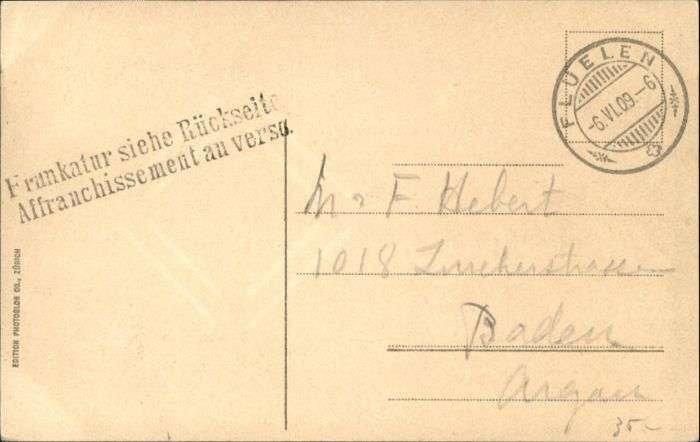 Frankatur siehe Rückseite
Affranchissement au verso.
FLÜELEN
-6.VI.09.-6
Mr F Hebert
1018
Baden
Argau
35-
EDITION PHOTOGLOB CO., ZÜRICH